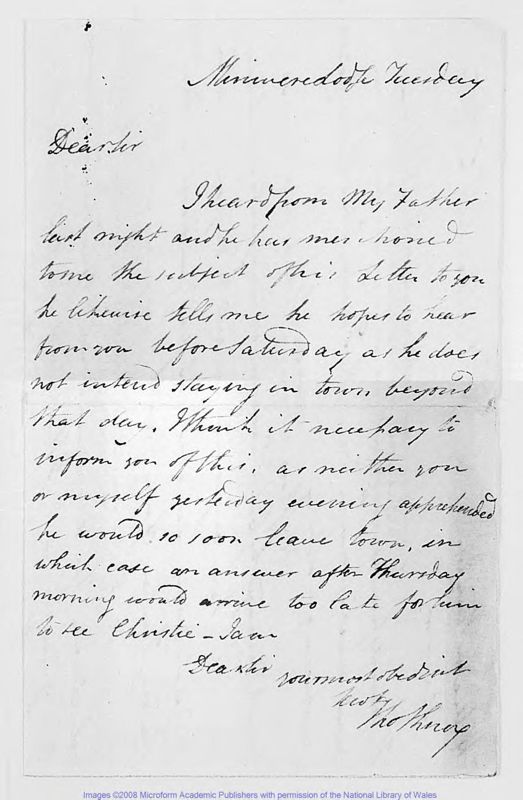 Minweredodfe Tuesday
Dear Sir
I heard from My Father
last night and he has mentioned
to me the subject of his Letter to you
he likewise tells me he hopes to hear
from you before Saturday as he does
not intend staying in town beyond
that day. I think it necessary to
inform you of this, as neither you
or myself yesterday evening apprehended
he would so soon leave town, in
which case an answer after Thursday
morning would arrive too late for him
to see Christie - I am
Dear Sir your most obedient
Tho
Images ©2008 Microform Academic Publishers with permission of the National Library of Wales